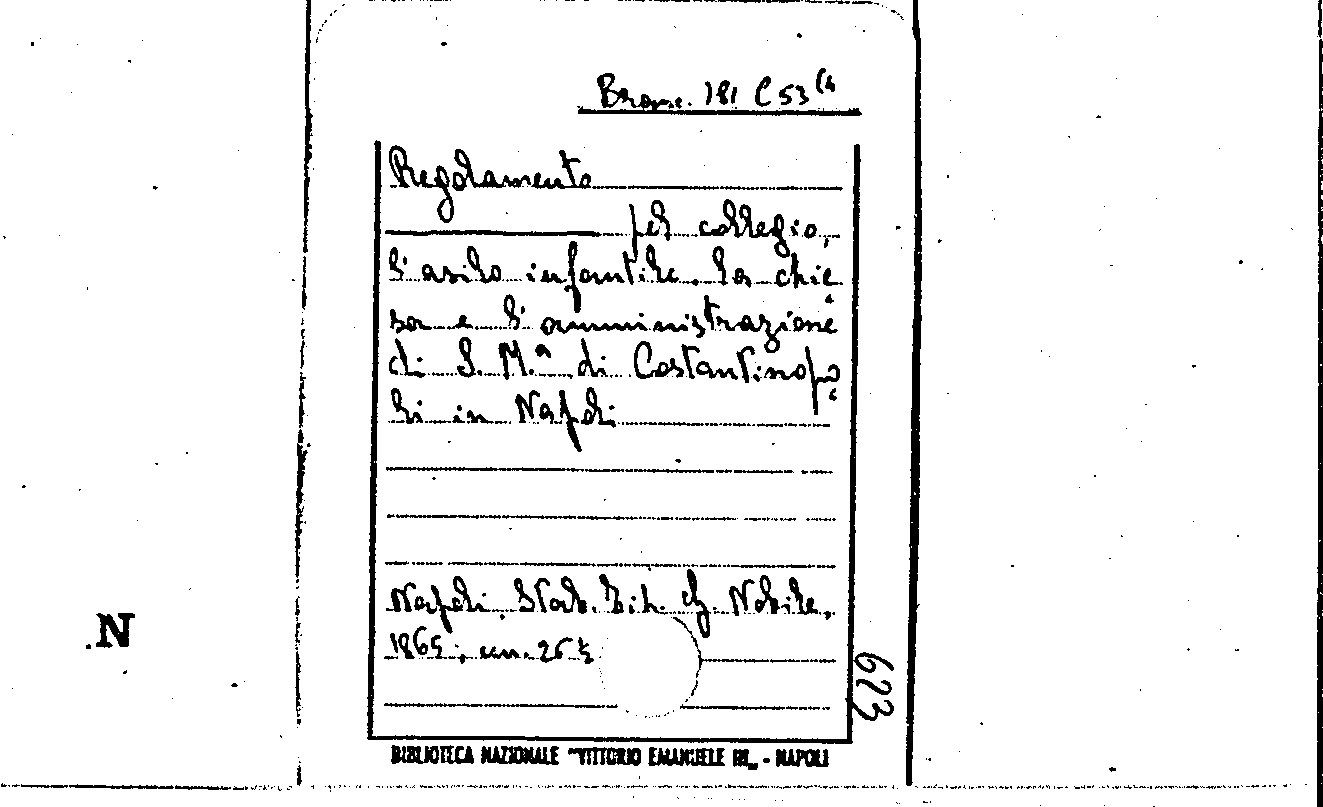 Branc. 181 C 53 (4
Regolamento
pel collegio,
l'asilo infantile, la chie
sa e l'amministrazione
di S. M.ª di Costantinopo
li in Napoli
Napoli, Stab. Tip. G. Nobile,
1865, cm. 26 ½
623
N
BIBLIOTECA NAZIONALE "VITTORIO EMANUELE III„ - NAPOLI